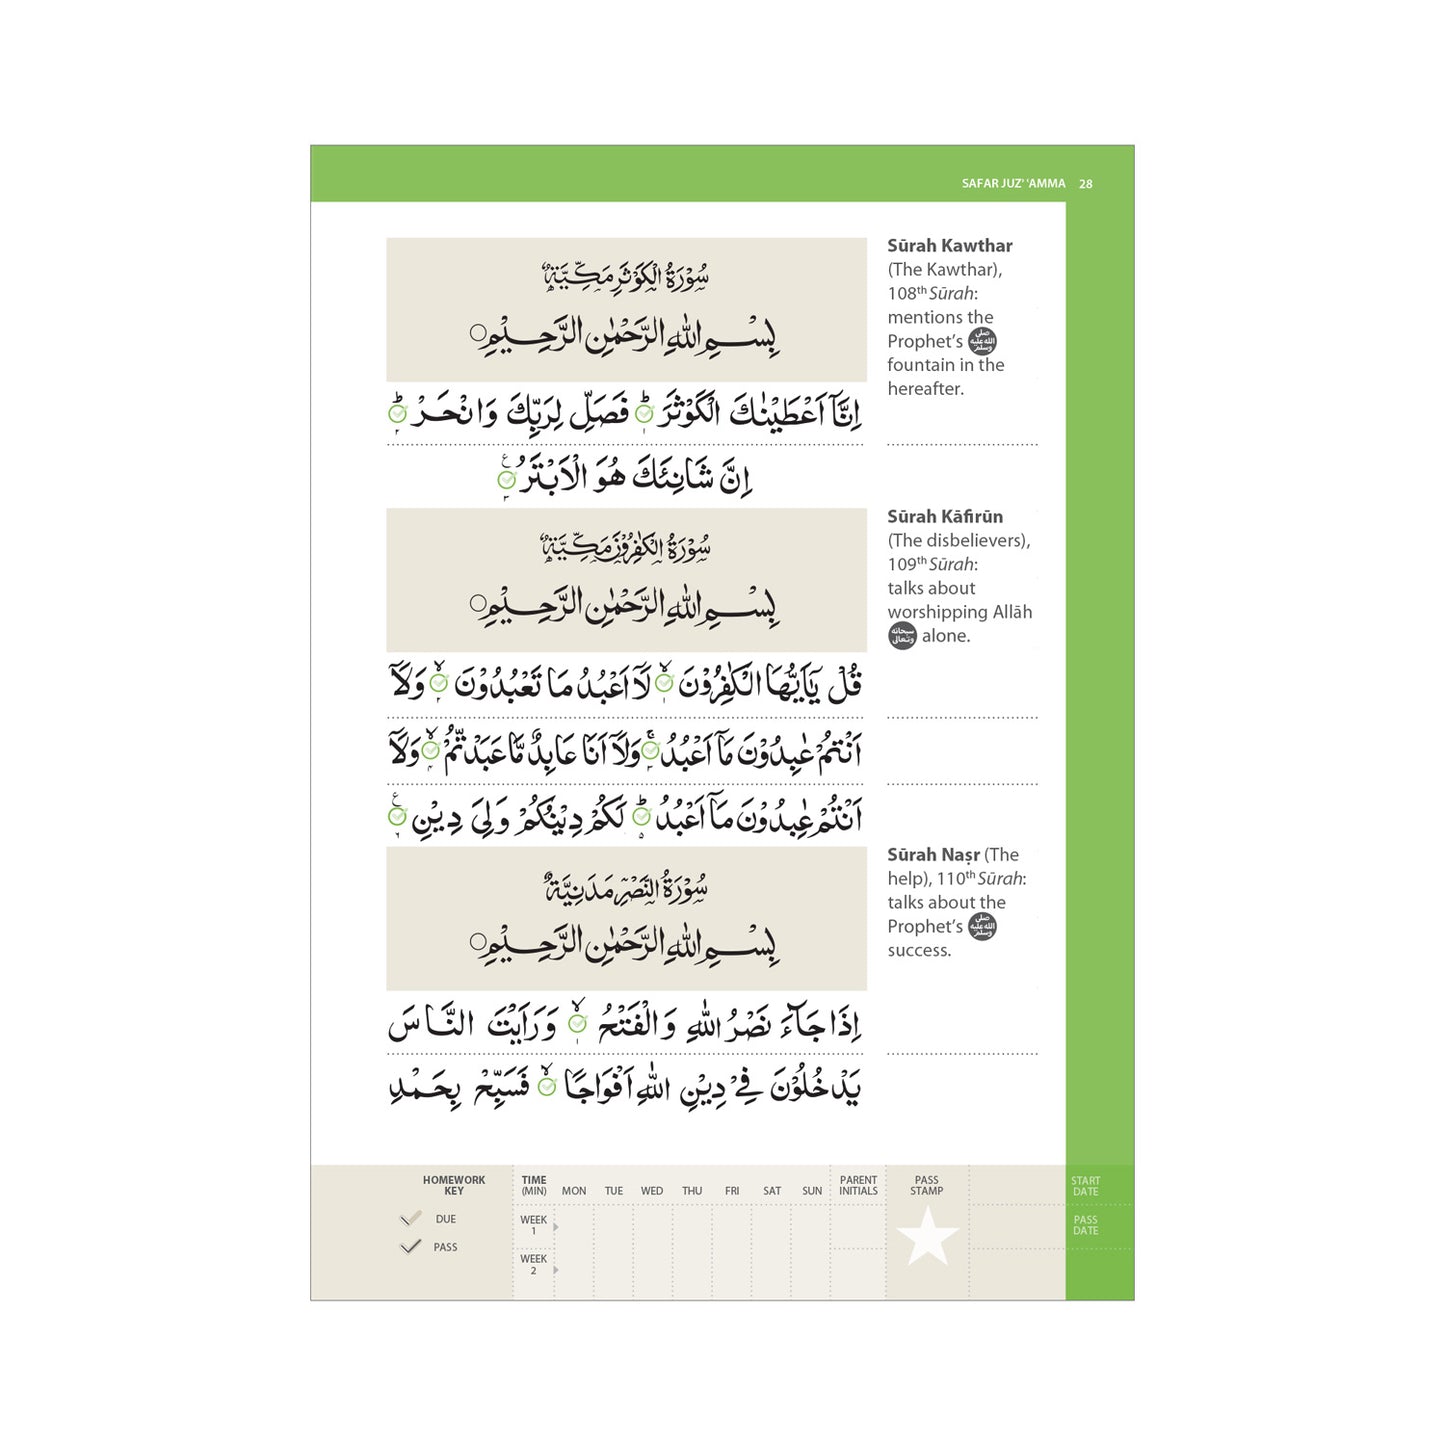 SAFAR JUZ' 'AMMA 28
سُوْرَةُ الْكَوْثَرِ مَكِّيَّةٌ
بِسْمِ اللّٰهِ الرَّحْمٰنِ الرَّحِيْمِ
اِنَّاۤ اَعْطَيْنٰكَ الْكَوْثَرَ ۱ؕ فَصَلِّ لِرَبِّكَ وَانْحَرْ ۲ؕ
اِنَّ شَانِئَكَ هُوَ الْاَبْتَرُ ۳
Sūrah Kawthar
(The Kawthar),
108th Sūrah:
mentions the
Prophet's ﷺ
fountain in the
hereafter.
سُوْرَةُ الْكٰفِرُوْنَ مَكِّيَّةٌ
بِسْمِ اللّٰهِ الرَّحْمٰنِ الرَّحِيْمِ
قُلْ يٰۤاَيُّهَا الْكٰفِرُوْنَ ۱ۙ لَاۤ اَعْبُدُ مَا تَعْبُدُوْنَ ۲ۙ وَلَاۤ
اَنْتُمْ عٰبِدُوْنَ مَاۤ اَعْبُدُ ۳ۚ وَلَاۤ اَنَا عَابِدٌ مَّا عَبَدْتُّمْ ۴ۙ وَلَاۤ
اَنْتُمْ عٰبِدُوْنَ مَاۤ اَعْبُدُ ۵ؕ لَكُمْ دِيْنُكُمْ وَلِيَ دِيْنِ ۶
Sūrah Kāfirūn
(The disbelievers),
109th Sūrah:
talks about
worshipping Allāh
سبحانه وتعالى alone.
سُوْرَةُ النَّصْرِ مَدَنِيَّةٌ
بِسْمِ اللّٰهِ الرَّحْمٰنِ الرَّحِيْمِ
اِذَا جَآءَ نَصْرُ اللّٰهِ وَالْفَتْحُ ۱ۙ وَرَاَيْتَ النَّاسَ
يَدْخُلُوْنَ فِيْ دِيْنِ اللّٰهِ اَفْوَاجًا ۙ فَسَبِّحْ بِحَمْدِ
Sūrah Naṣr (The
help), 110th Sūrah:
talks about the
Prophet's ﷺ
success.
HOMEWORK KEY
DUE
PASS
TIME (MIN) MON TUE WED THU FRI SAT SUN
WEEK 1
WEEK 2
PARENT INITIALS
PASS STAMP
START DATE
PASS DATE